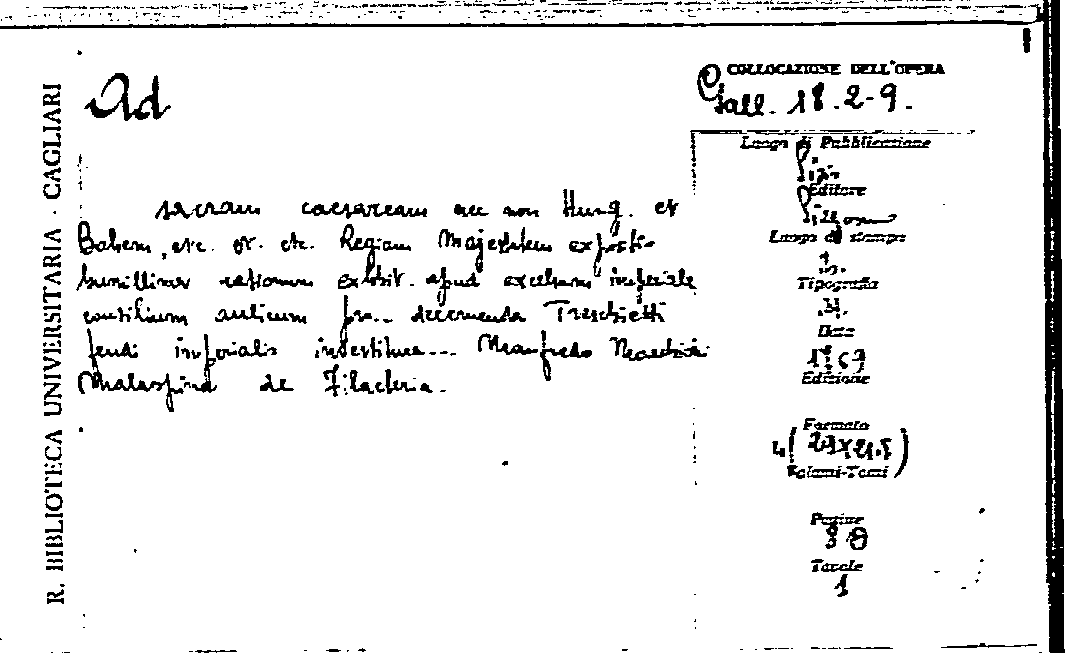 R. BIBLIOTECA UNIVERSITARIA · CAGLIARI
Ad
sacram caesaream nec non Hung. et
Bohem, etc. et. etc. Regiam Majestatem expositio
humillima rationum exhibit. apud excelsum imperiale
consilium aulicum pro... decernenda Treschietti
feudi imperialis investitura... Manfredo
Malaspina de Filacteria.
COLLOCAZIONE DELL'OPERA
Gall. 18. 2-9.
Luogo di Pubblicazione
Editore
Luogo di stampa
Tipografia
Data
Edizione
Formato
4 (29x21.5)
Volumi-Tomi
Pagine
Tavole
1